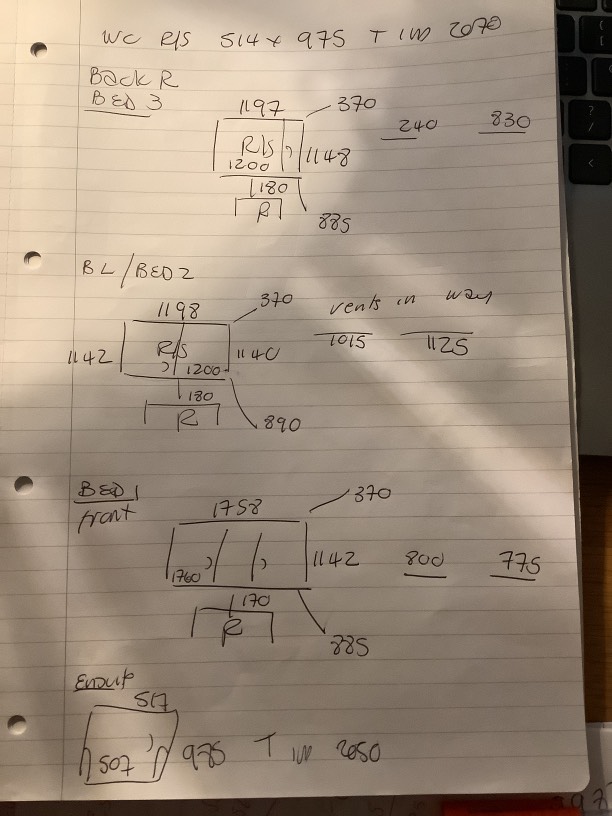 WC R/S 514 x 975 T IN 2070
Back R
BED 3
1197 370
240 830
R/S 1148
1200
180
R
885
BL/BED 2
1198 370
vents in way
1015 1125
1142 R/S 1140
1200
180
R
890
BED 1
front
1758 370
1142
1760
800 775
170
R
885
Ensuite
517
507 975 T IN 2050